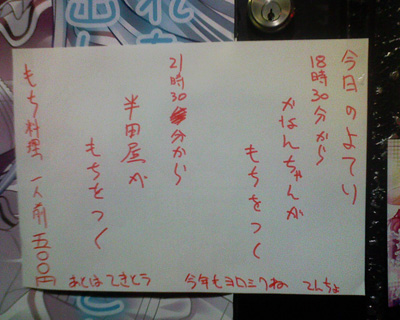 今日のよてい
18時30分から
かなんちゃんが
もちをつく
21時30分から
半田屋が
もちをつく
もち料理 一人前 五〇〇円
あとはてきとう
今年もヨロシクね てんちょ